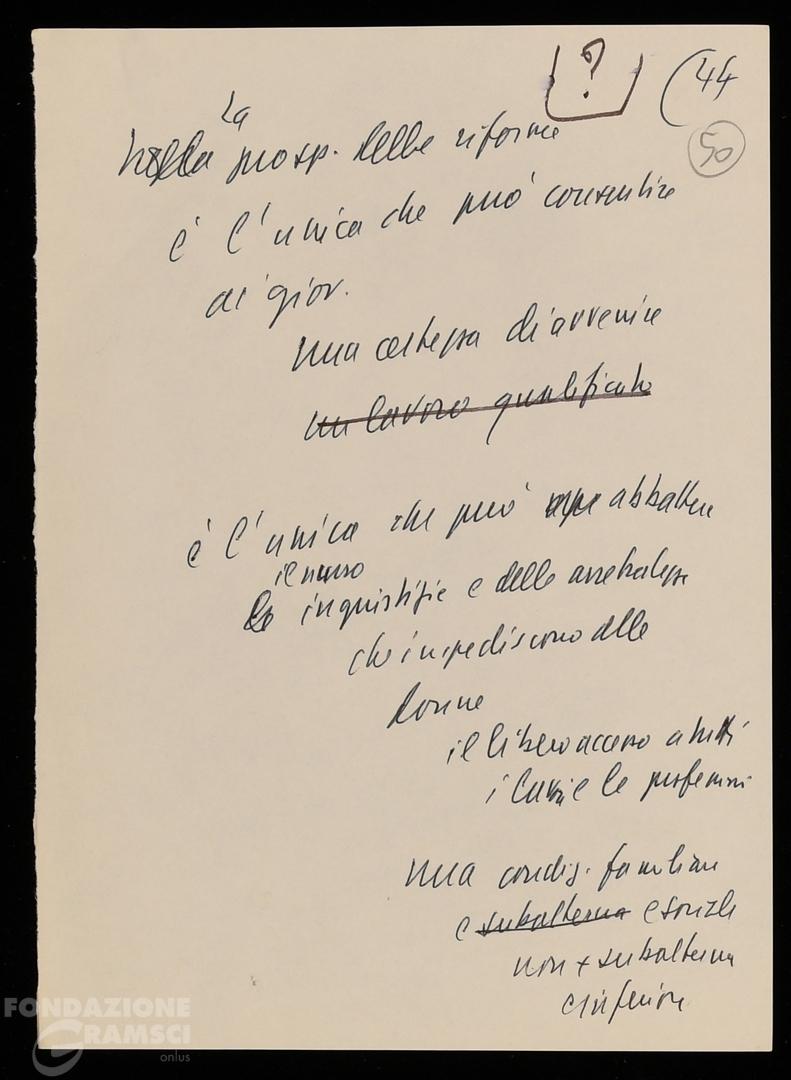 ? (44
50
La
Nella prosp. delle riforme
è l'unica che può consentire
ai giov.
una certezza di avvenire
un lavoro qualificato
è l'unica che può abbattere
il muro
le ingiustizie e delle arretratezze
che impediscono alle
donne
il libero accesso a tutti
i lavori e le professioni
una condiz. familiare
e subalterna e sociale
non + subalterna
e inferiore
FONDAZIONE
GRAMSCI
onlus